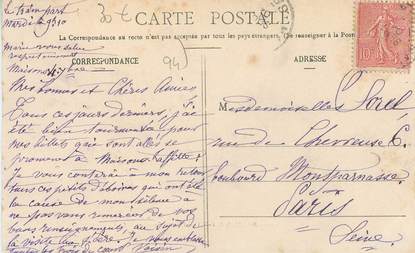 30€
94
CARTE POSTALE
La Correspondance au recto n'est pas acceptée par tous les pays étrangers. (Se renseigner à la Poste
CORRESPONDANCE
ADRESSE
le train part
Mardi 2 9h10
Marie vous salue
respectueusement
Maisons
Mes bonnes et Chères Amies
Tous ces jours derniers, j'ai
été bien tourmentée pour
mes billets qui sont allés se
promener à Maisons-Laffitte
Je vous conterai à mon retour
tous ces petits déboires qui ont été
la cause de mon silence à
ne pas vous remercier de vos
bons renseignements, au sujet de
la visite
toutes les trois de cœur
Mesdemoiselles Sorel,
rue de Chevreuse 6.
boulevard Montparnasse
Paris
Seine.
10